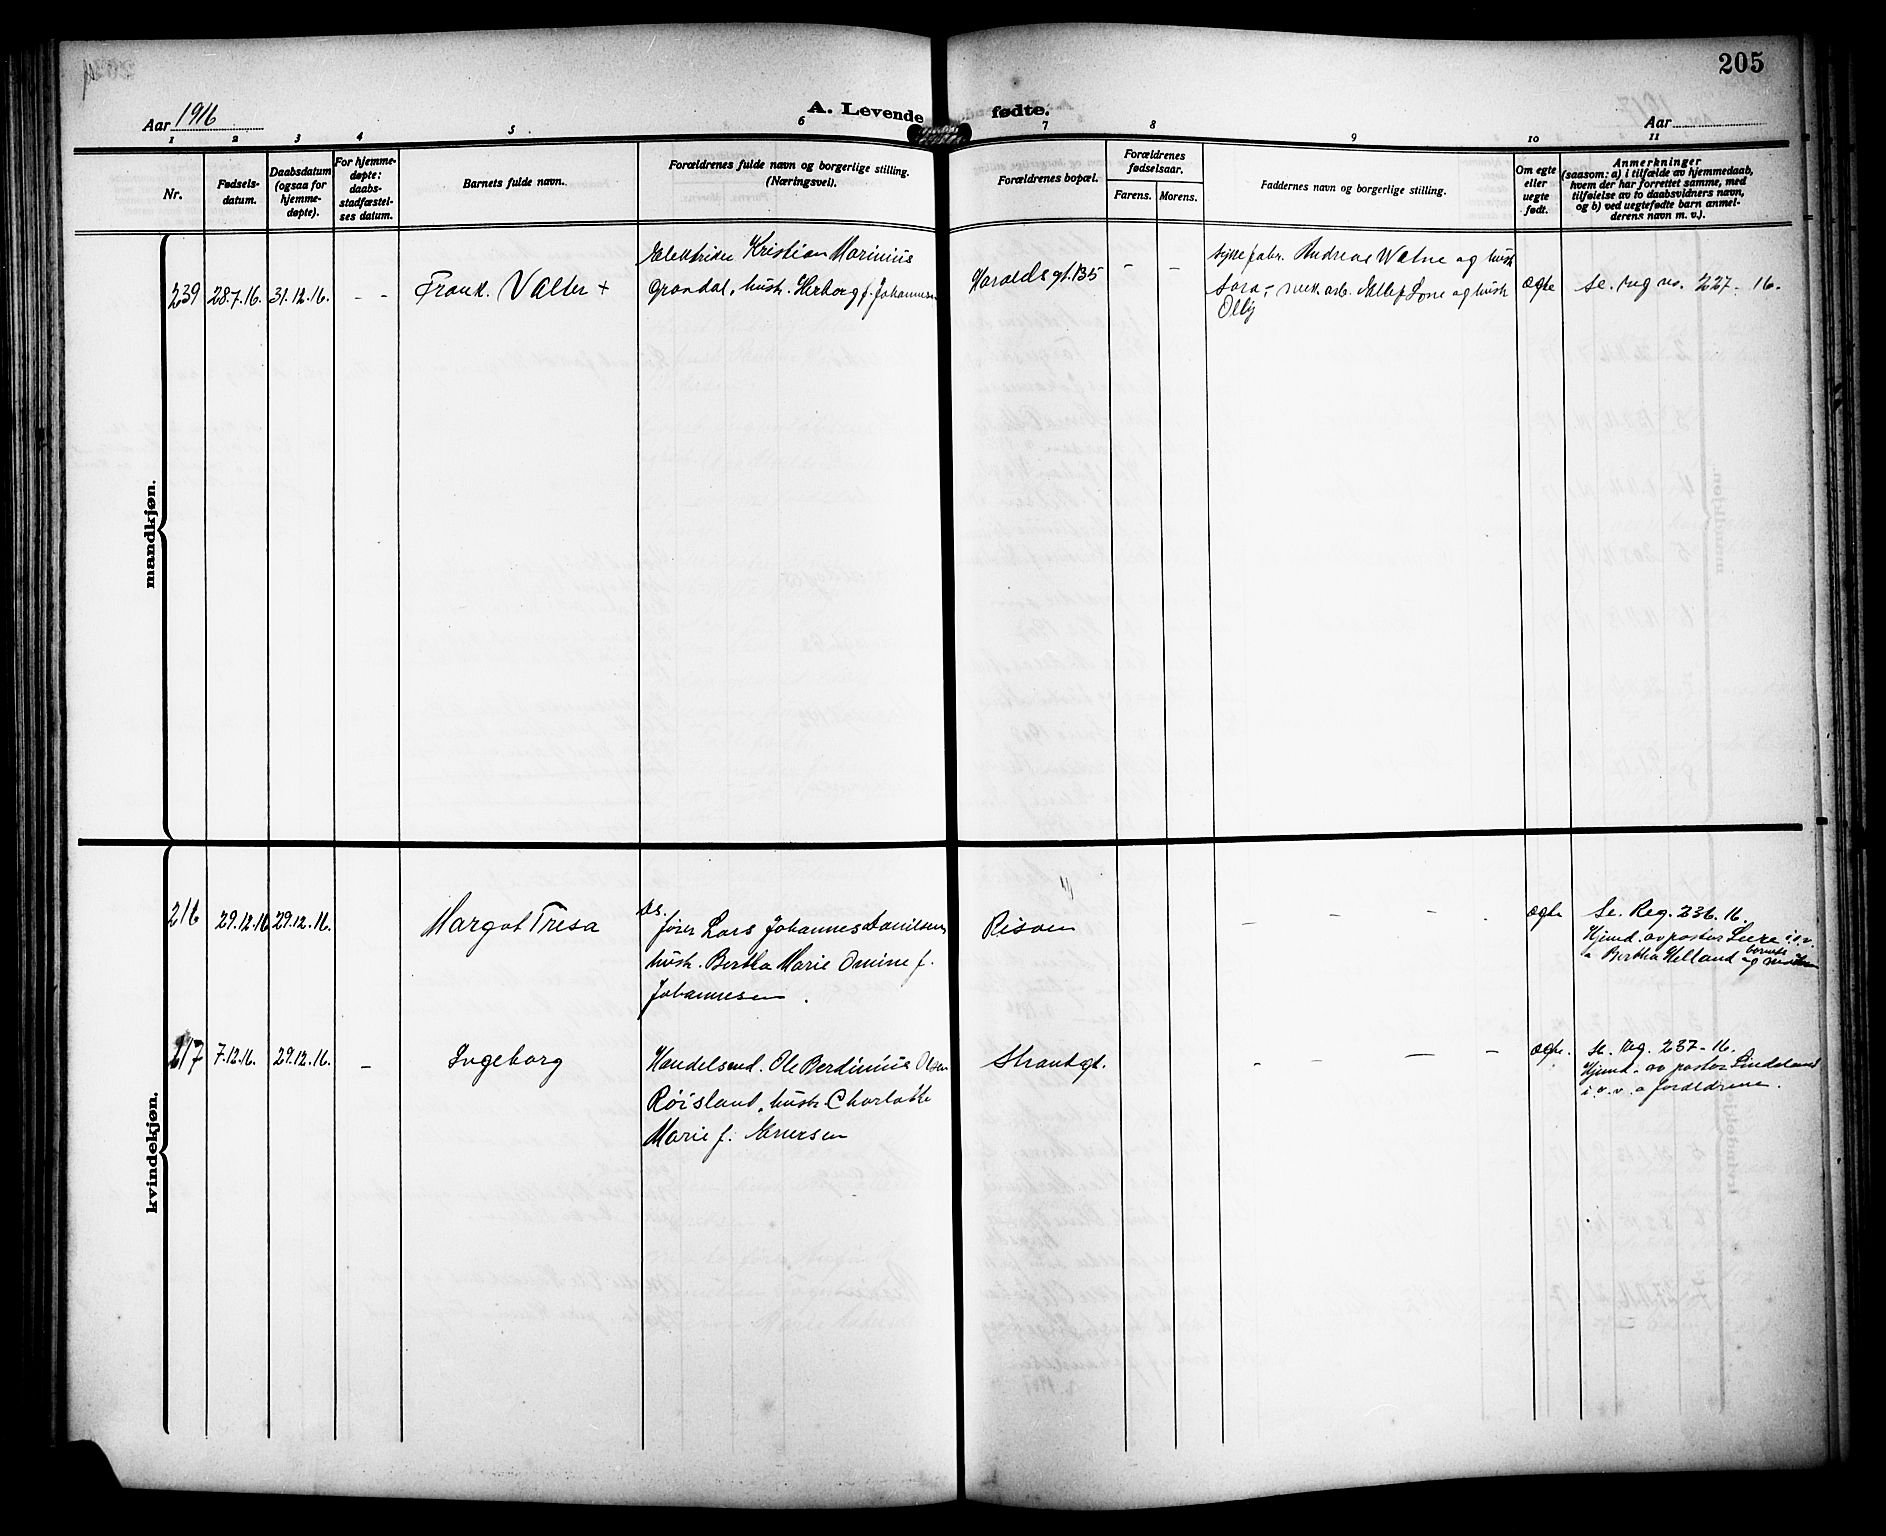 205
Aar 1916
A. Levende fødte.
Aar
1 2 3 4 5 6 7 8 9 10 11
Nr.
Fødsels-
datum.
Daabsdatum
(ogsaa for
hjemme-
døpte).
For hjemme-
døpte:
daabs-
stadfæstel-
ses datum.
Barnets fulde navn.
Forældrenes fulde navn og borgerlige stilling.
(Næringsvei).
Forældrenes bopæl.
Forældrenes
fødselsaar.
Farens. Morens.
Faddernes navn og borgerlige stilling.
Om egte
eller
uegte
født.
Anmerkninger
(saasom: a) i tilfælde av hjemmedaab,
hvem der har forrettet samme, med
tilføielse av to daabsvidners navn,
og b) ved uegtefødte barn anmel-
derens navn m. v.).
mandkjøn.
239 28.7.16. 31.12.16. - - Frank. Valter +
Elektriker Kristian Marinius
Grøndal, hustr. Herborg f. Johannesen
Haraldsgt. 135 - -
Andreas Watne og hustr
Sara, og hustr
Olly
ægte
Se. reg no. 227 - 16.
kvindekjøn.
216 29.12.16 29.12.16. Margot Tresa
fører Lars Johannes Danielsen,
hustr. Bertha Marie Omine f.
Johannesen.
Risøen
- - - .
ægte
Se. Reg. 236. 16.
Hjemd. av pastor i.o.v.
a Bertha Helland og barnets
217 7.12.16. 29.12.16. - Ingeborg
Handelsmd. Ole Berdinius Olsen
Røisland, hustr. Charlotte
Marie f. Iversen
Strandgt.
- - - -
ægte.
Se. reg. 237-16.
Hjemd. av pastor Lindeland
i.o.v. a forældrene.